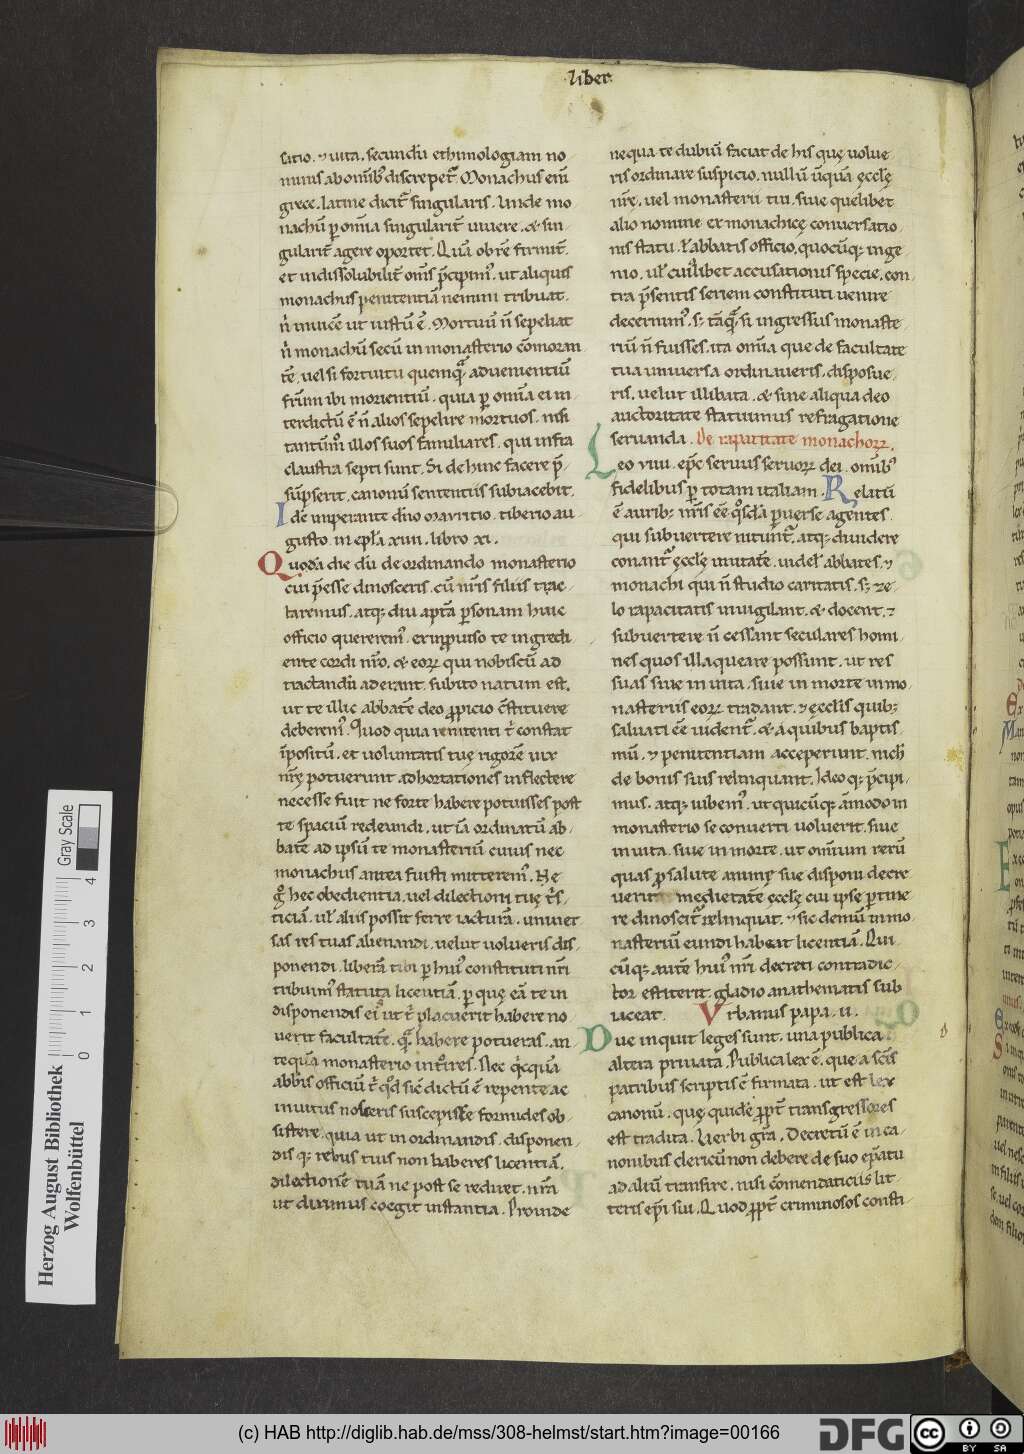 liber
sitio. ⁊ uita. secundū ethimologiam no
minis ab om̄ib; discrepet᷑. Monachus eni͂
grece. latine dicit᷑ singularis. Unde mo
nachū p̱ om̄ia singularit͂ uiuere. & sin
gularit͂ agere oportet. Quā ob rē firmit͂.
et indissolubilit͂ om̄s p̄cipim⁹. ut aliquis
monachus penitentiā nemini tribuat.
n̓ inuicē ut iustū ē. Mortuū n̄ sepeliat
n̓ monachū secū in monasterio cōmoran
tē. uel si fortuitu quemq̄ aduenientiū
fr̄m ibi morientiū. quia p̱ om̄ia ei in
terdictū ē n̄ alios sepelire mortuos. nisi
tantūm̊ illos suos familiares. qui infra
claustra septi sunt. Si dehinc facere p̄
sūpserit. canonū sententiis subiacebit.
Idē imperante dn̄o mauritio. tiberio au
gusto. in epl̄a xuii. libro xi.
Quodā die dū de ordinando monasterio
cui p̄esse dinosceris. cū nr̄is filiis trac
taremus. atq; diu aptā p̱sonam huic
officio quererem⁹. ex inp̱uiso te ingredi
ente cordi nr̄o. & eoꝝ qui nobiscū ad
tractandū aderant. subito natum est.
ut te illic abbatē deo p̱picio c̄stituere
deberem⁹. Quod quia renitenti t̓ constat
īpositū. et uoluntatis tuę rigorē uix
nr̄ę potuerunt adhortationes inflectere
necesse fuit ne forte habere potuisses post
te spaciū redeundi. ut iā ordinatū ab
batē ad ipsū te monasteriū cuius nec
monachus antea fuisti mitterem⁹. Ne
g̊ hec obedientia. uel dilectioni tuę t̓s
ticiā. ul̄ aliis possit ferre iacturā. uniuer
sas res tuas alienandi. uelut uolueris dis
ponendi. liberā tibi p̱ hui⁹ constituti nr̄i
tribuim⁹ statuta licentiā. p̱ quę eā te in
disponendis ei⁹ ut t̓ placuerit habere no
uerit facultatē. q̄ habere potueras. an
tequā monasterio int̓res. Nec q̓cquā
abb̄is officiū t̓ qd̄ sic dictū ē repente ac
inuitus nosceris suscepisse formides ob
sistere. quia ut in ordinandis. disponen
dis q; rebus tuis non haberes licentiā.
dilectionē tuā ne post se reduxit. nr̄a
ut diximus coegit instantia. Proinde
nequa te dubiū faciat de his quę uolue
ris ordinare suspicio. nullū ūquā ęcclę
nr̄ę. uel monasterii tui. siue quelibet
alio nomine ex monachicę conuersatio
nis statu. ul̄ abbatis officio. quocūq; inge
nio. ul̄ cuiuslibet accusationis specie. con
tra p̄sentis seriem constituti uenire
decernim⁹. s; tāq̄ si ingressus monaste
riū n̄ fuisses. ita om̄ia que de facultate
tua uniuersa ordinaueris. disposue
ris. uelut illibata. & sine aliqua deo
auctoritate statuimus refragatione
seruanda. De raputitate monachoꝝ.
Leo uiiii. ep̄c seruus seruoꝝ dei. omib⁹
fidelibus p̱ totam italiam. Relatū
ē aurib; nr̄is eē q̊sdā p̱uerse agentes
qui subuertere nitunt᷑. atq; diuidere
conant᷑ ęcclę unitatē. uidel̄ abbates. ⁊
monachi qui n̄ studio caritatis. s; ze
lo rapacitatis inuigilant. & docent. ⁊
subuertere n̄ cessant seculares homi
nes quos illaqueare possunt. ut res
suas siue in uita. siue in morte in mo
nasteriis eoꝝ tradant. ⁊ ęcclīs quib;
saluati eē uident᷑. & a quibus baptis
mū. ⁊ penitentiam acceperunt. nich̄
de bonis suis relinquant. Ideo q; p̄cipi
mus. atq; iubem⁹. ut quicūq; āmodo in
monasterio se conuerti uoluerit. siue
in uita. siue in morte. ut omnium rerū
quas p̱ salute animę sue disponi decre
uerit medietatē ęcclę cui ipse p̱tine
re dinoscit᷑ relinquat. ⁊ sic demū in mo
nasteriū eundi habeat licentiā. Qui
cūq; autē hui⁹ nr̄i decreti contradic
tor extiterit. gladio anathematis sub
iaceat. Vrbanus papa. ii.
Due inquit leges sunt. una publica
altera priuata. Publica lex ē. que a sc̄is
patribus scriptis ē firmata. ut est lex
canonū. quę quidē p̱pt᷑ transgressores
est tradita. Uerbi gr̄a. Decretū ē in ca
nonibus clericū non debere de suo ep̄atu
ad aliū transire. nisi cōmendaticiis lit
teris ep̄i sui. Quod p̱pt᷑ criminosos consti
Gray Scale
0 1 2 3 4
Herzog August Bibliothek
Wolfenbüttel
(c) HAB http://diglib.hab.de/mss/308-helmst/start.htm?image=00166
DFG
cc
BY
SA